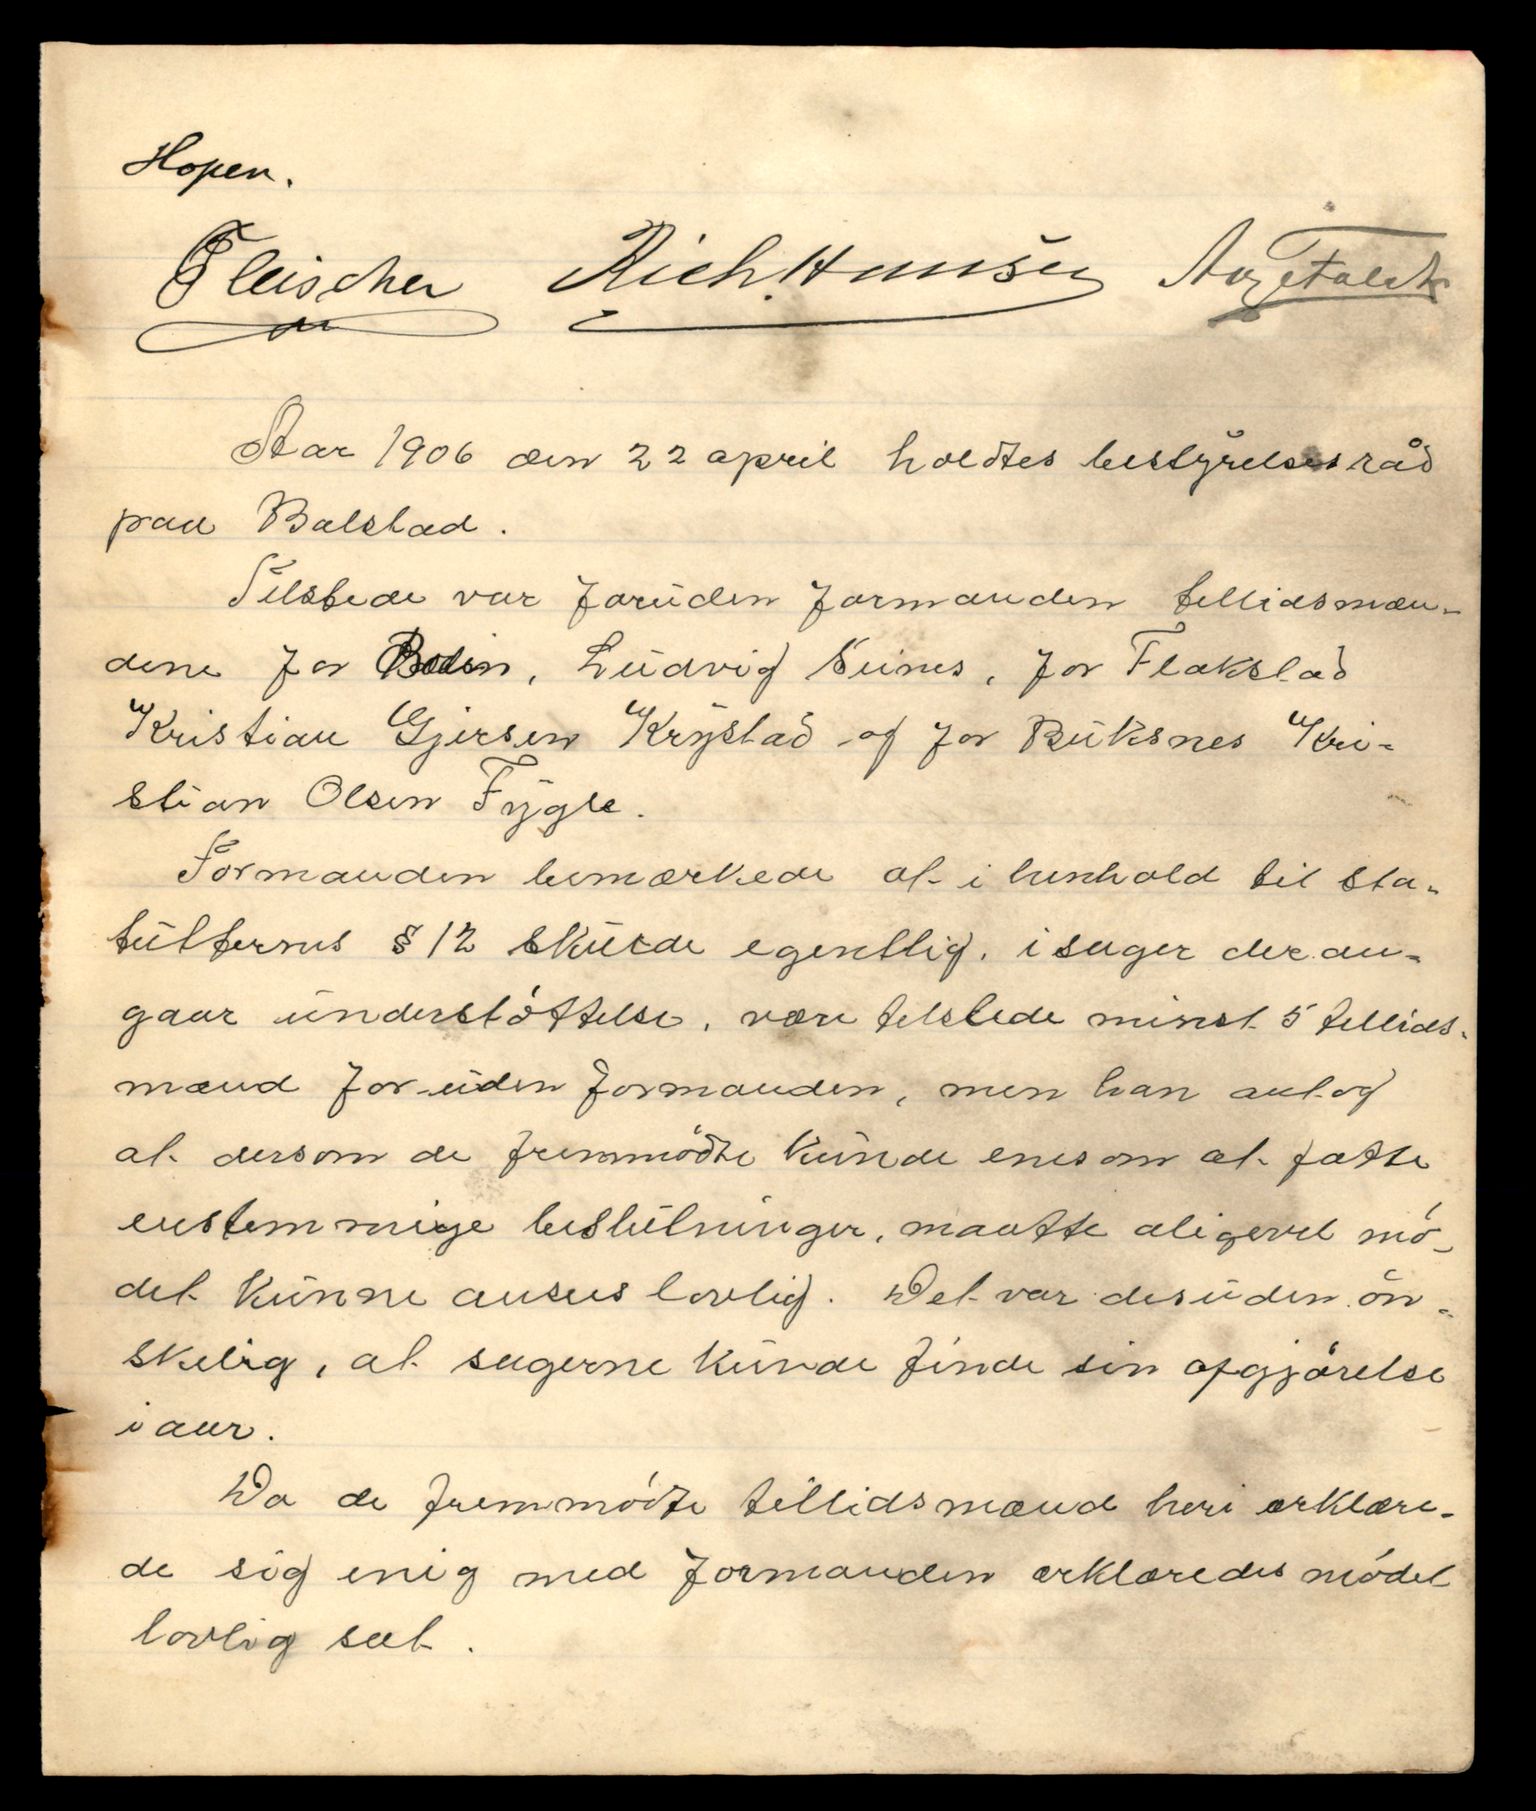 Hopen.
Fleischer Rich. Hansen Aug Falck
Aar 1906 den 22 april holdtes bestyrelsesråd
paa Balstad.
Tilstede var foruden formanden tillidsmæn-
dene for Bodin, Ludvig Seines, for Flakstad
Kristian Gjersen Krystad og for Buksnes Kri-
stian Olsen Fygle.
Formanden bemærkede at i henhold til sta-
tutternes § 12 skulde egentlig, i sager der an-
gaar understøttelse, være tilstede minst 5 tillids-
mænd foruden formanden, men han antog
at dersom de fremmødte kunde enes om at fatte
enstemmige beslutninger, maatte aligevel mø-
det kunne ansees lovlig. Det var desuden øn-
skelig, at sagerne kunde finde sin afgjørelse
i aar.
Da de fremmødte tillidsmænd heri erklære-
de sig enig med formanden erklæredes mødet
lovlig sat.